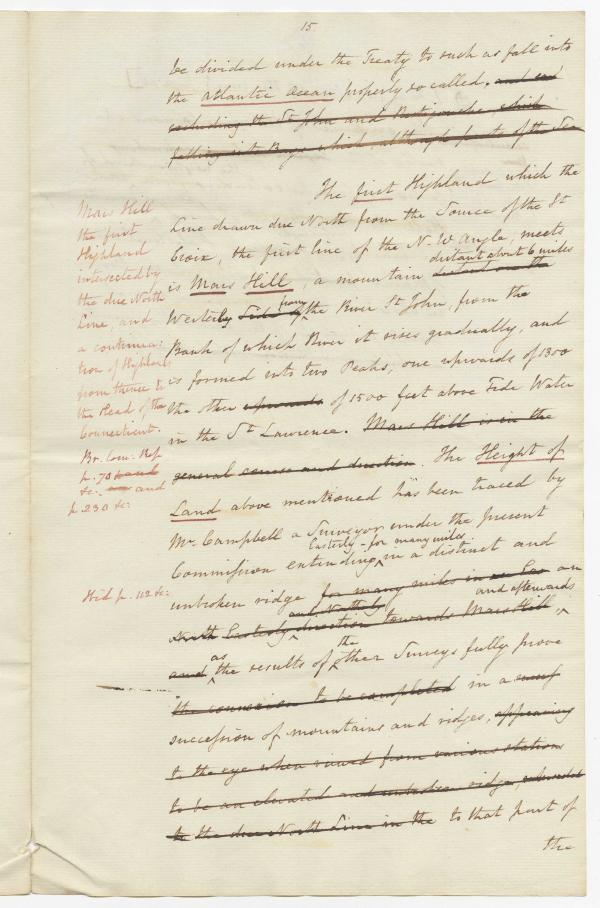 15.
be divided under the Treaty to such as fall into
the Atlantic Ocean properly so called. and
excluding the St John and Restigouche, which
falling into Bays which although parts of the Sea
The first Highland which the
Line drawn due North from the Source of the St
Croix, the first line of the N. W. Angle, meets
distant about 6 miles
is Mars Hill, a mountain on the
Westerly Side from of the River St John, from the
Bank of which River it rises gradually, and
is formed into two Peaks; one upwards of 1300
the other upwards of 1500 feet above Tide Water
in the St Lawrence. Mars Hill is in the
general course and direction. The Height of
Land above mentioned has been traced by
Mr. Campbell a Surveyor under the present
Easterly - for many miles
Commission extending in a distinct and
unbroken ridge for many miles in an
and Northerly and afterwards
North Easterly direction towards Mars Hill,
and as the results of the other Surveys fully prove
the connexion to be completed in a
succession of mountains and ridges, appearing
to the eye when viewed from various stations
to be an elevated and unbroken ridge,
to the due North Line in the to that part of
the
Mars Hill
the first
Highland
intersected by
the due North
Line, and
a continua:
tion of Highland
from thence to
the Head of the
Connecticut.
Br. Com. Rep.
p. 70 and
&c. and
p 230 &c:
Ibid p. 112 &c: